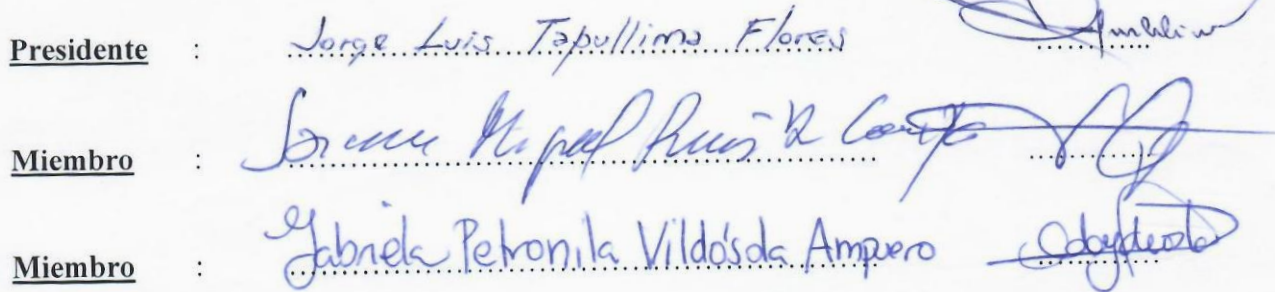 Presidente : Jorge Luis Tapullima Flores
Miembro : Miguel Ruiz
Miembro : Gabriela Petronila Vildósola Ampuero